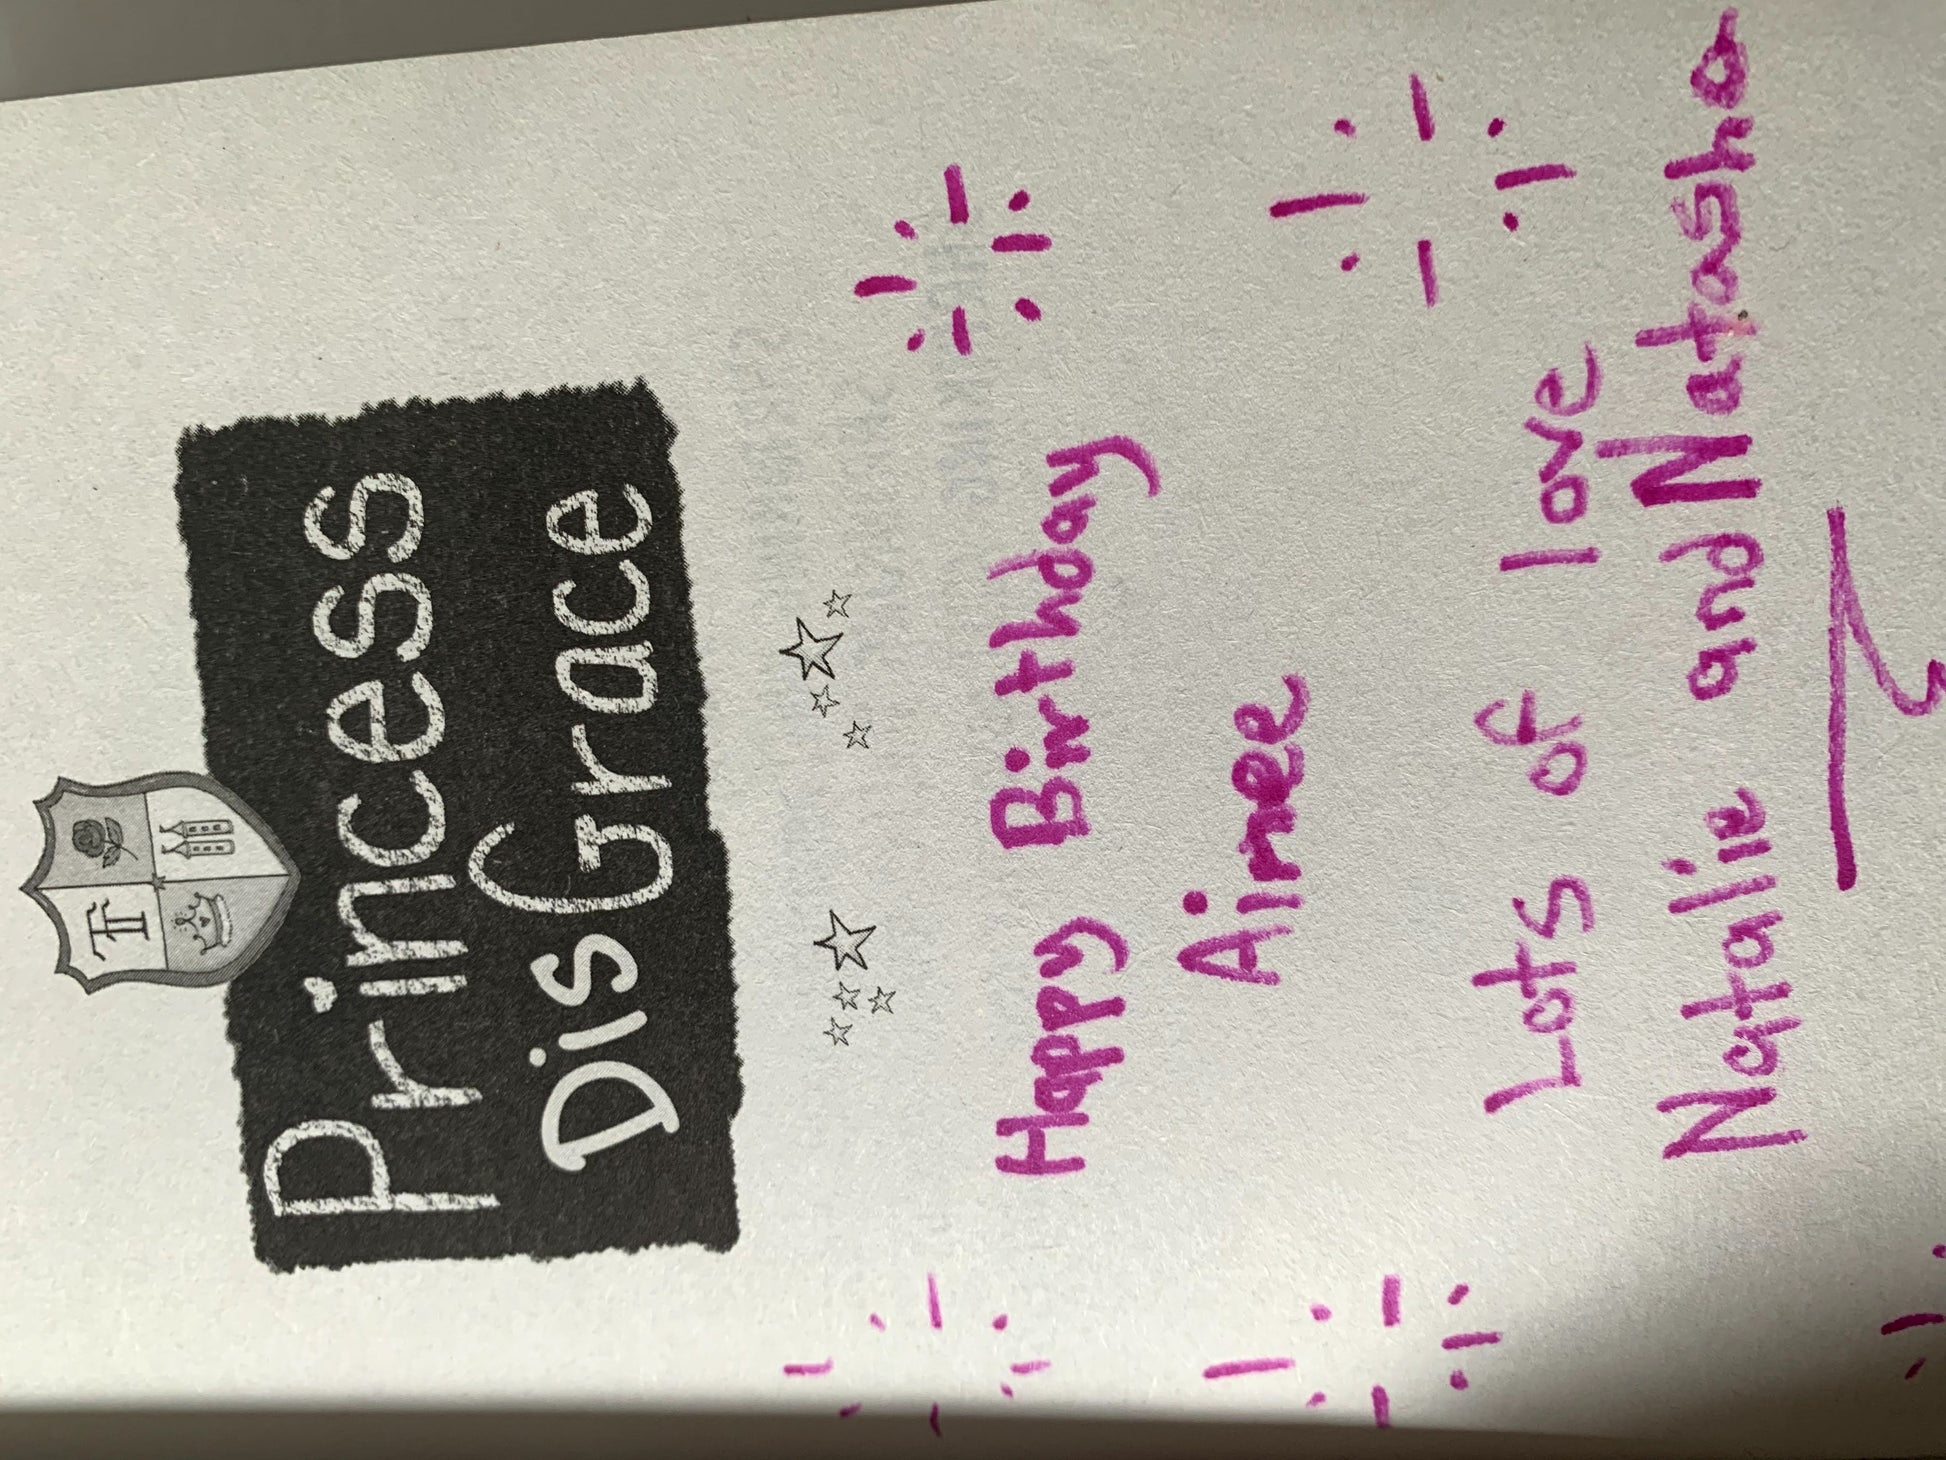 TT
Princess
DisGrace
Happy Birthday
Aimee
Lots of love
Natalie and Natasha